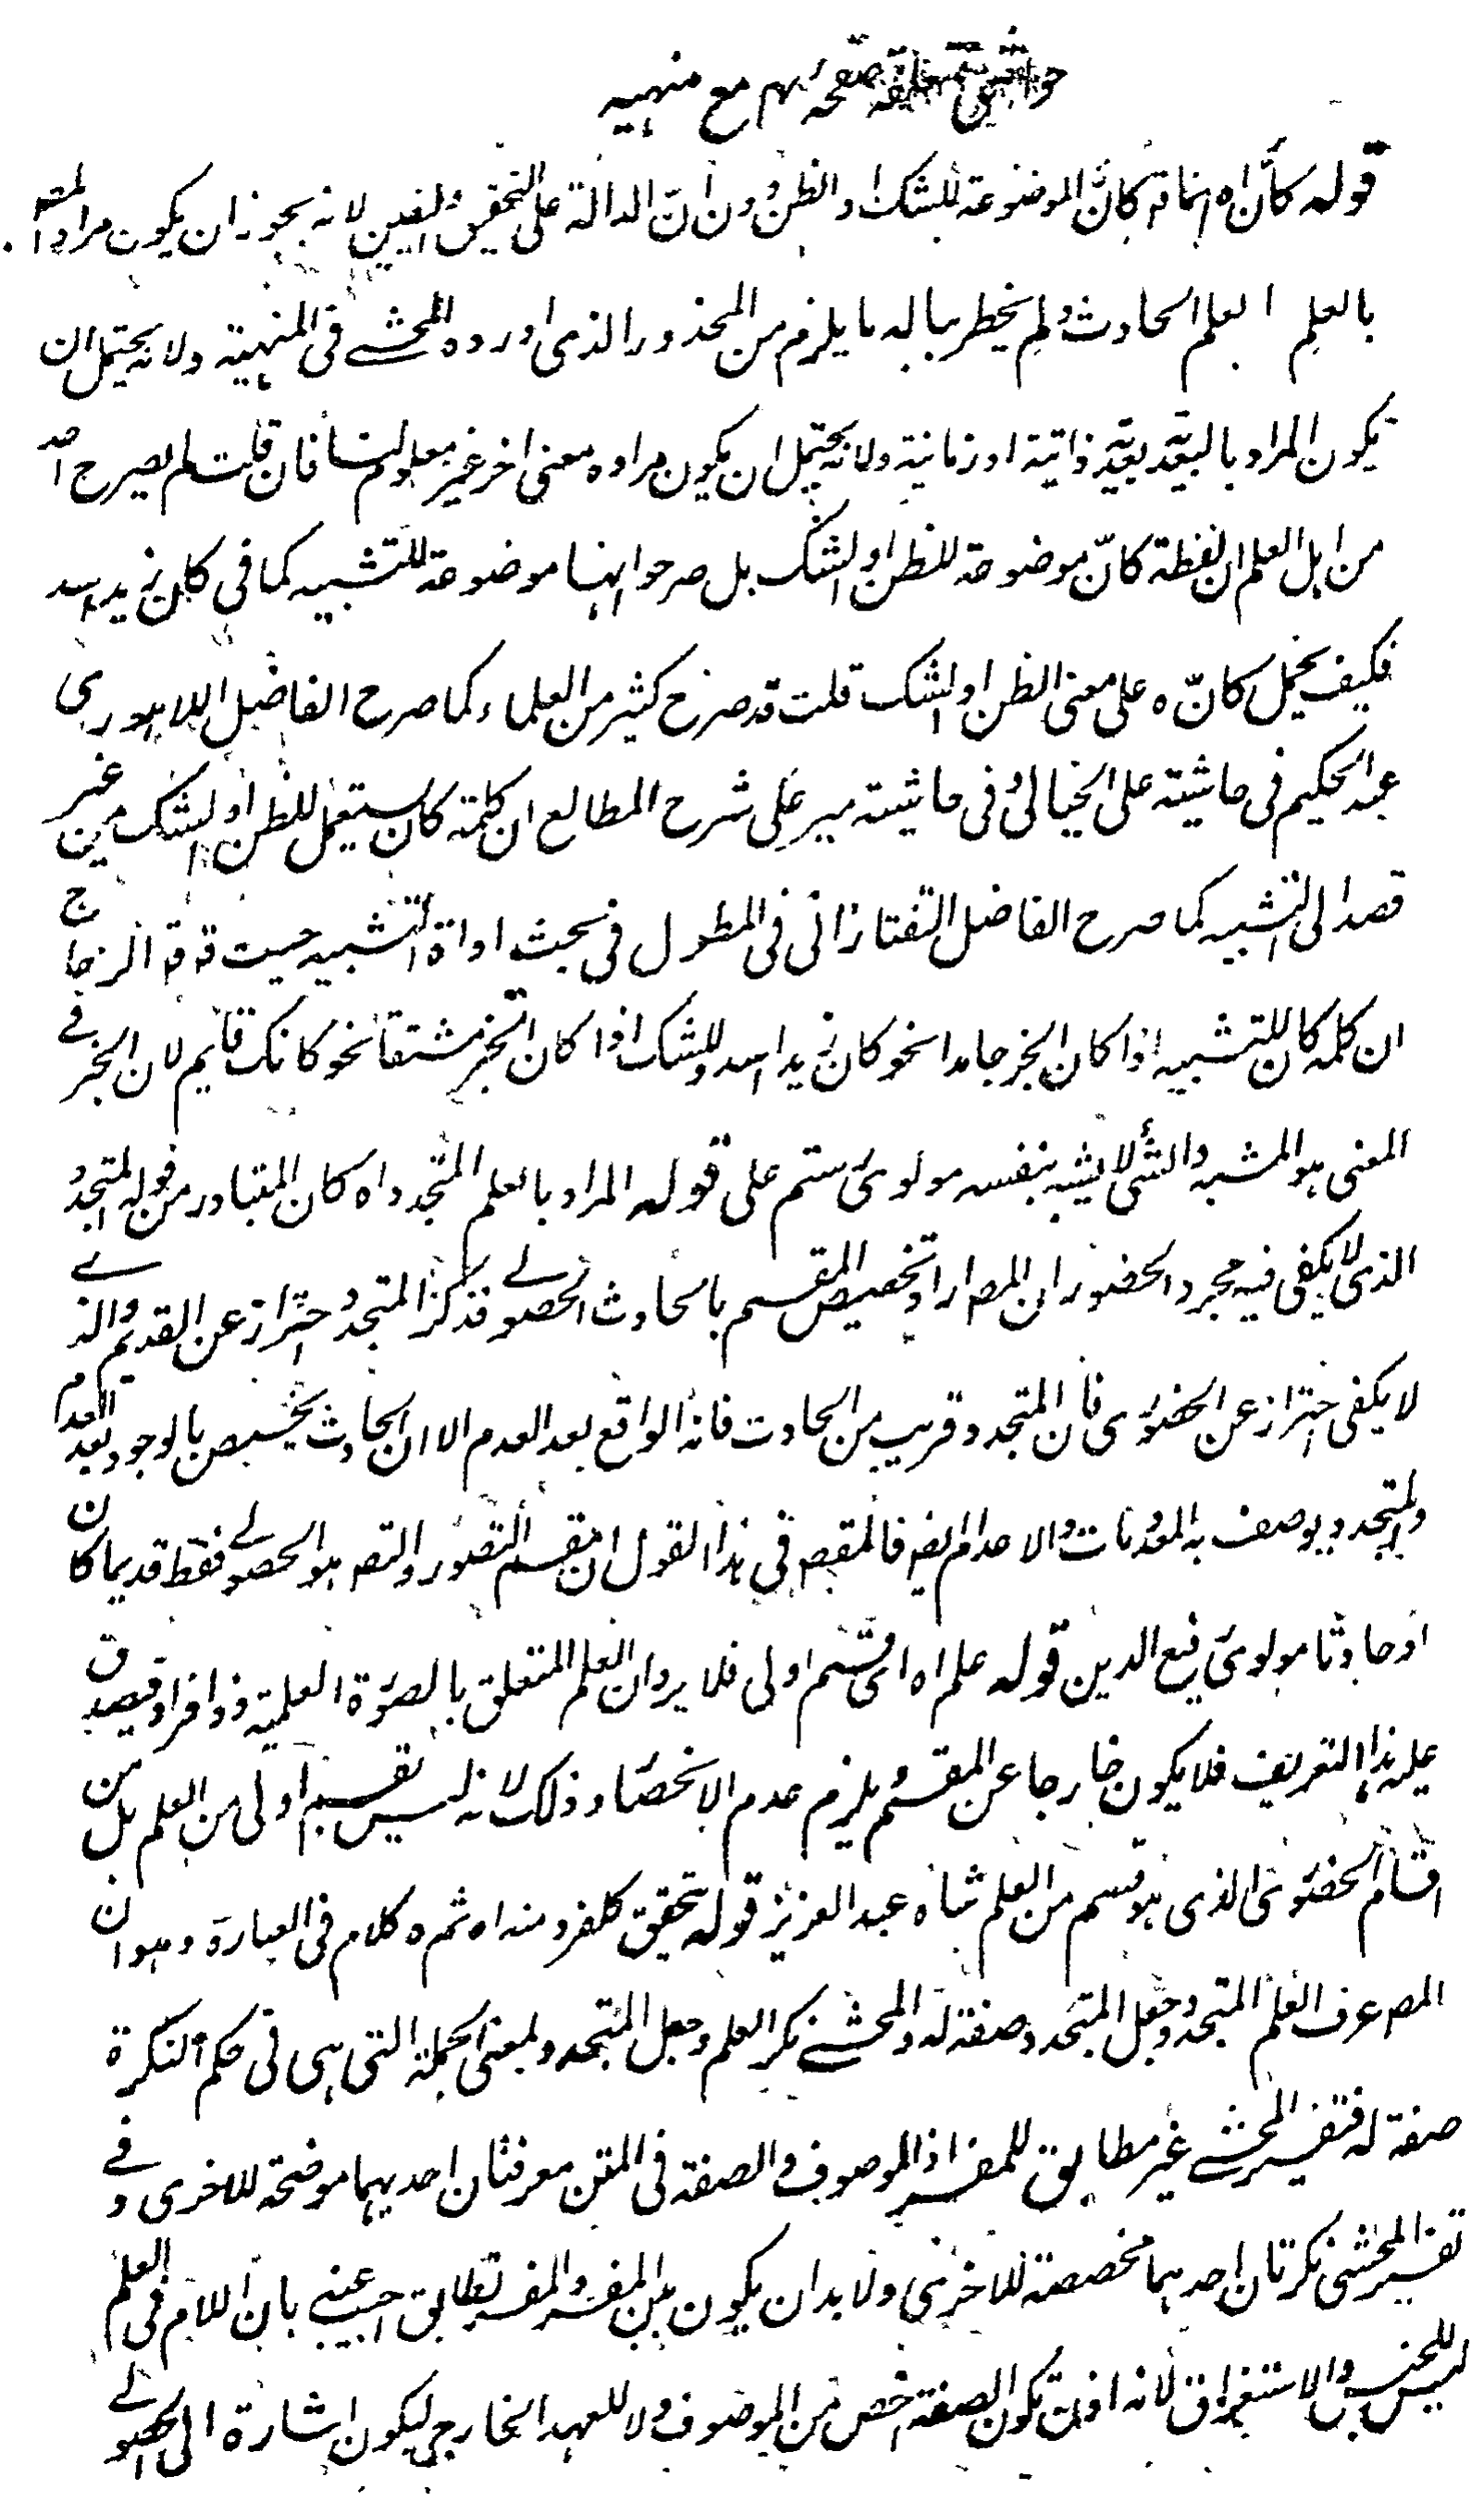 حواشي متعلقه صفحه نهم مع منهيه
قوله كأن اه انما ق كأن الموضوعة للشك او الظن دون ان الدالة على التحقيق واليقين لانه يجوز ان يكون مراد المصـ
بالعلم العلم الحادث ولم يخطر بباله ما يلزم من المحذور الذى اورده المحشے فى المنهية ولانه يحتمل ان
يكون المراد بالبعدية بعدية ذاتية او زمانية ولانه يحتمل ان يكون مراده معنى اخر غير معلوم لنا فان قلت لم يصرح احد
من اهل العلم ان لفظة كأنّ موضوعة للظن او الشك بل صرحوا انها موضوعة للتشبيه كما فى كان زيد اسد
فكيف يحمل كانّ ه على معنى الظن او الشك قلت قد صرح كثير من العلماء كما صرح الفاضل اللاهورى
عبد الحكيم فى حاشيته على الخيالى وفى حاشيته مير على شرح المطالع ان كلمة كان يستعمل للظن او الشك من غير
قصد الى التشبيه كما صرح الفاضل التفتازانى فى المطول فى بحث اداة التشبيه حيث ق ق الزجاج
ان كلمه كان للتشبيه اذا كان الخبر جامدا نحو كان زيدا اسد وللشك اذا كان الخبر مشتقا نحو كانك قايم لان الخبر فے
المعنى هو المشبه والشئ لا يشبه بنفسه مولوى رستم على قوله المراد بالعلم المتجدد اه كان المتبادر من قوله المتجدد
الذى لا يكفى فيه مجرد الحضور ان المصـ اراد تخصيص المقسم بالحادث الحصولے فذكر المتجدد احتراز عن القديم والذے
لا يكفى احتراز عن الحضورى فان المتجدد قريب من الحادث فانه الواقع بعد العدم الا ان الحادث يختص بالوجود بعد العدم
والمتجدد يوصف به المعدومات والاعدام ايضـ فالمقصـ فى هذا القول ان مقسم التصور والتصـ هو الحصولے فقط قديما كان
او حادثا مولوى رفيع الدين قوله علم اه اى قسم اولى فلا يرد ان العلم المتعلق بالصورة العلمية ذو افراد فيصدق
عليه هذا التعريف فلا يكون خارجا عن المقسم ويلزم عدم الانحصار وذلك لانه ليس بقسم اولى من العلم بل من
اقسام الحضورى الذى هو قسم من العلم شاه عبد العزيز قوله تحقق كل فرد منه اه ثمره كلام فى العبارة وهو ان
المصـ عرف العلم المتجدد وجعل المتجدد صفة له والمحشے نكر العلم وجعل المتجدد بمعنى الجملة التى هى فى حكم النكرة
صفة له فتفسير المحشے غير مطابق للمفسر اذ الموصوف والصفة فى المتن معرفتان احديهما موضحة للاخرى وفے
تفسير المحشى نكرتان احدهما مخصصة للاخرى ولا بد ان يكون بين المفسر والمفسر تطابق اجيب عنے بان اللام فى العلم
ليس للجنس والاستغراق لانه اذن تكون الصفة اخص من الموصوف ولا للعهد الخارجى ليكون اشارة الى الحصولے